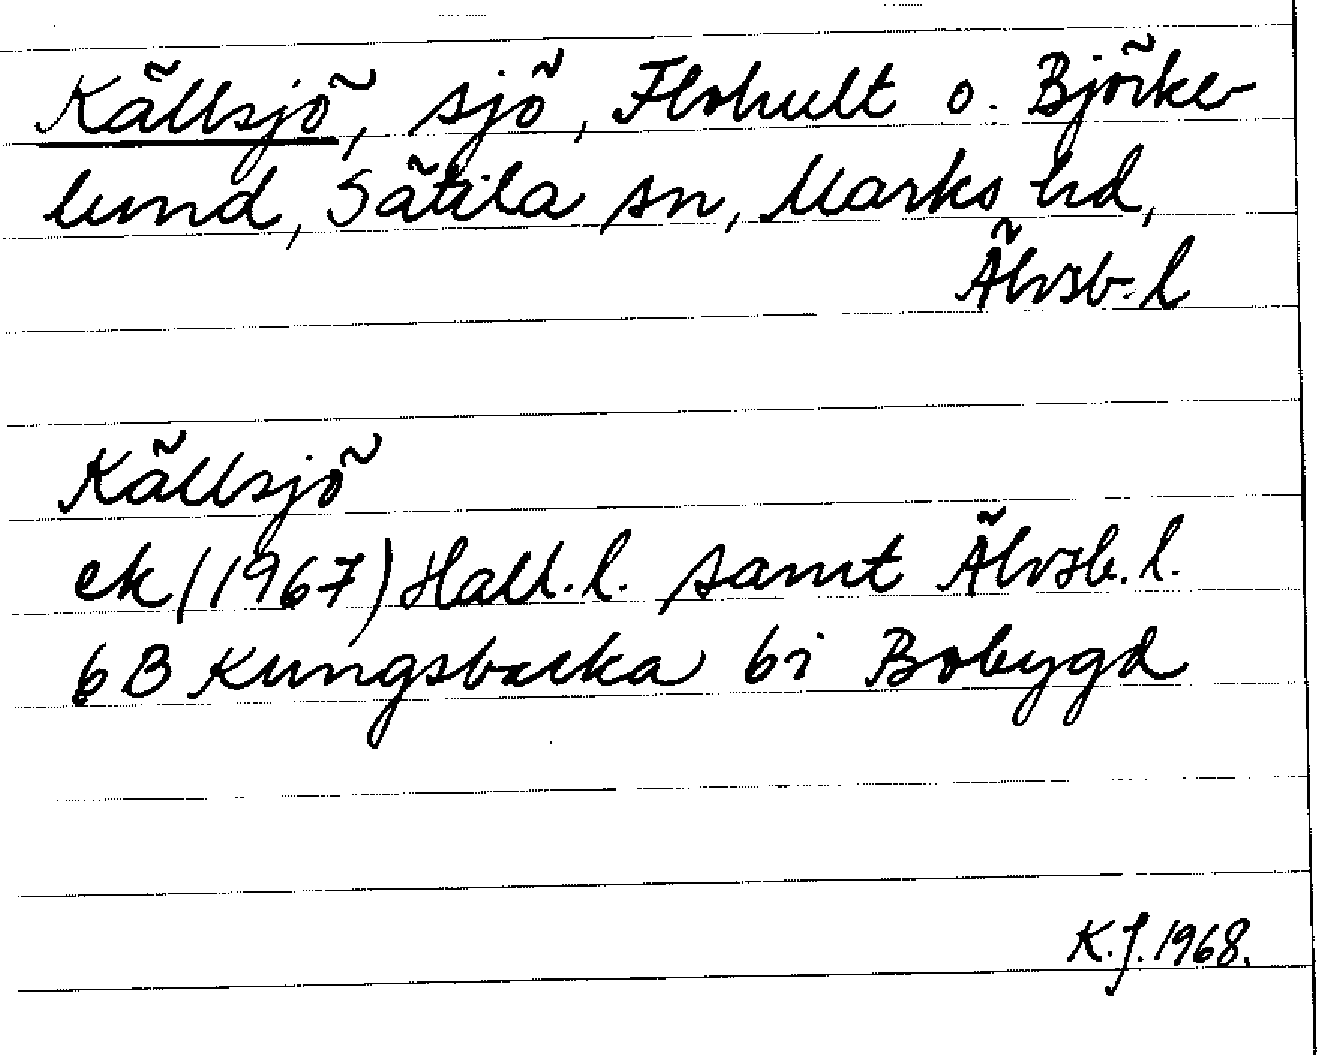 Källsjö, sjö, Flohult o. Björke-
lund, Sätila sn, Marks hd,
Älvsb. l
Källsjö
ek (1967) Hall. l. samt Älvsb. l.
6B Kungsbacka 6i Bobygd
K.J. 1968.